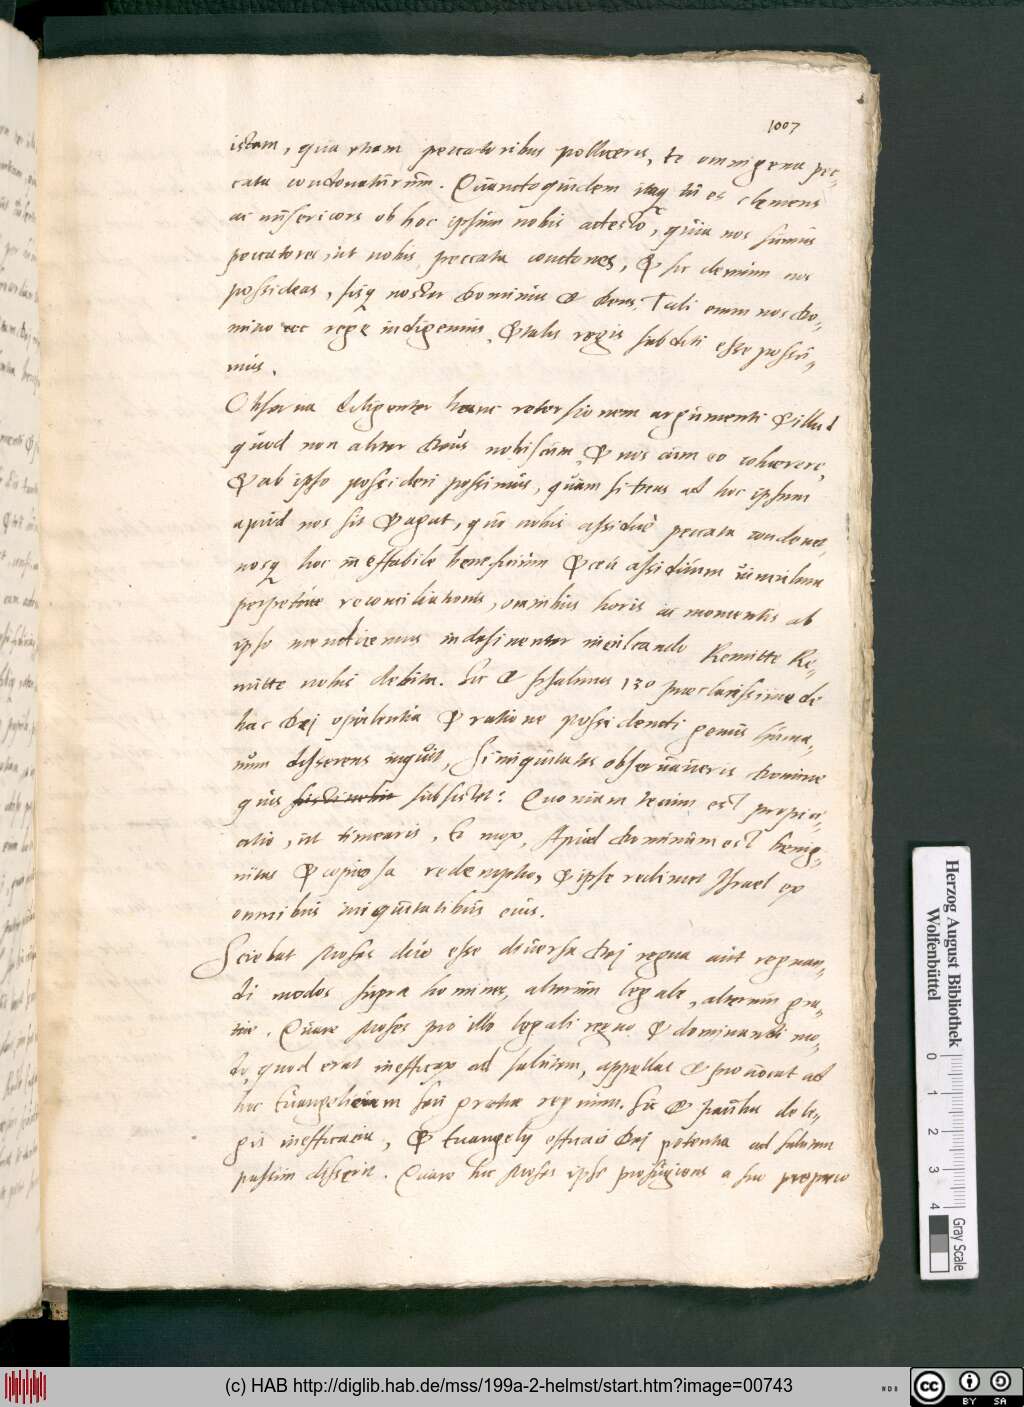 1007
istam, quia etiam peccatoribus polliceris, te omnigena pec-
cata condonaturum. Quandoquidem itaq tu es clemens
ac misericors ob hoc ipsum nobis adesto, quia nos sumus
peccatores, ut nobis peccata condones, & sic demum nos
possideas, sisq noster Dominus & Deus. Tali enim nos Do-
mino rege indigemus, & talis regis subditi esse possu-
mus.
Observa diligenter hanc retorsionem argumenti & illud
quod non aliter Deus nobiscum, & nos cum eo cohaerere,
& ab ipso possideri possimus, quam si Deus ad hoc ipsum
apud nos sit & agat, quo nobis assidue peccata condonet,
nosq hoc ineffabile beneficium & ceu assiduum vinculum
perpetuae reconciliationis, omnibus horis ac momentis ab
ipso mendicemus indesinenter inculcando Remitte Re-
mitte nobis debita. Sic & psalmus 130 praeclarissime de
hac Dei opulentia & ratione possidendi genus huma-
num disserens inquit, Si iniquitates observaveris Domine
quis sustinebit subsistet? Quoniam tecum est propici-
atio, ut timearis. Et mox, Apud Dominum est benig-
nitas & copiosa redemptio, & ipse redimet Israel ex
omnibus iniquitatibus eius.
Sciebat Moses duo esse diversa Dei regna aut regnan-
di modos supra homines, alterum legale, alterum gra-
tiae. Quare Moses pro illo legali regno & dominandi mo-
do, quod erat inefficax ad salutem, appellat & provocat ad
hoc Euangelicum seu gratiae regnum. Sic & Paulus de le-
gis inefficacia, & Euangelij efficaci Dei potentia ad salutem
passim disserit. Quare hic Moses ipse profugiens a suo proprio
Herzog August Bibliothek
Wolfenbüttel
0 1 2 3 4
Gray Scale
(c) HAB http://diglib.hab.de/mss/199a-2-helmst/start.htm?image=00743
cc BY SA